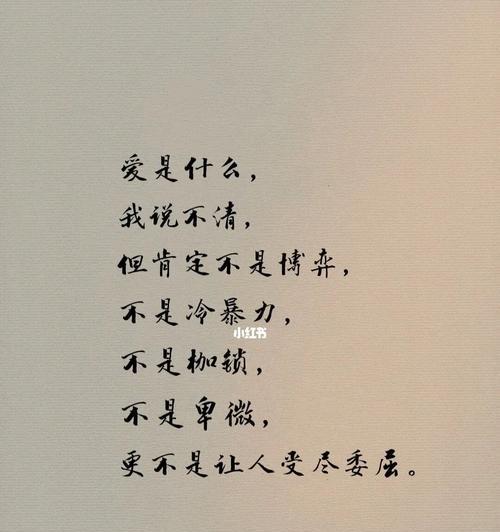 爱是什么，
我说不清，
但肯定不是博弈，
不是冷暴力，
小红书
不是枷锁，
不是卑微，
更不是让人受尽委屈。